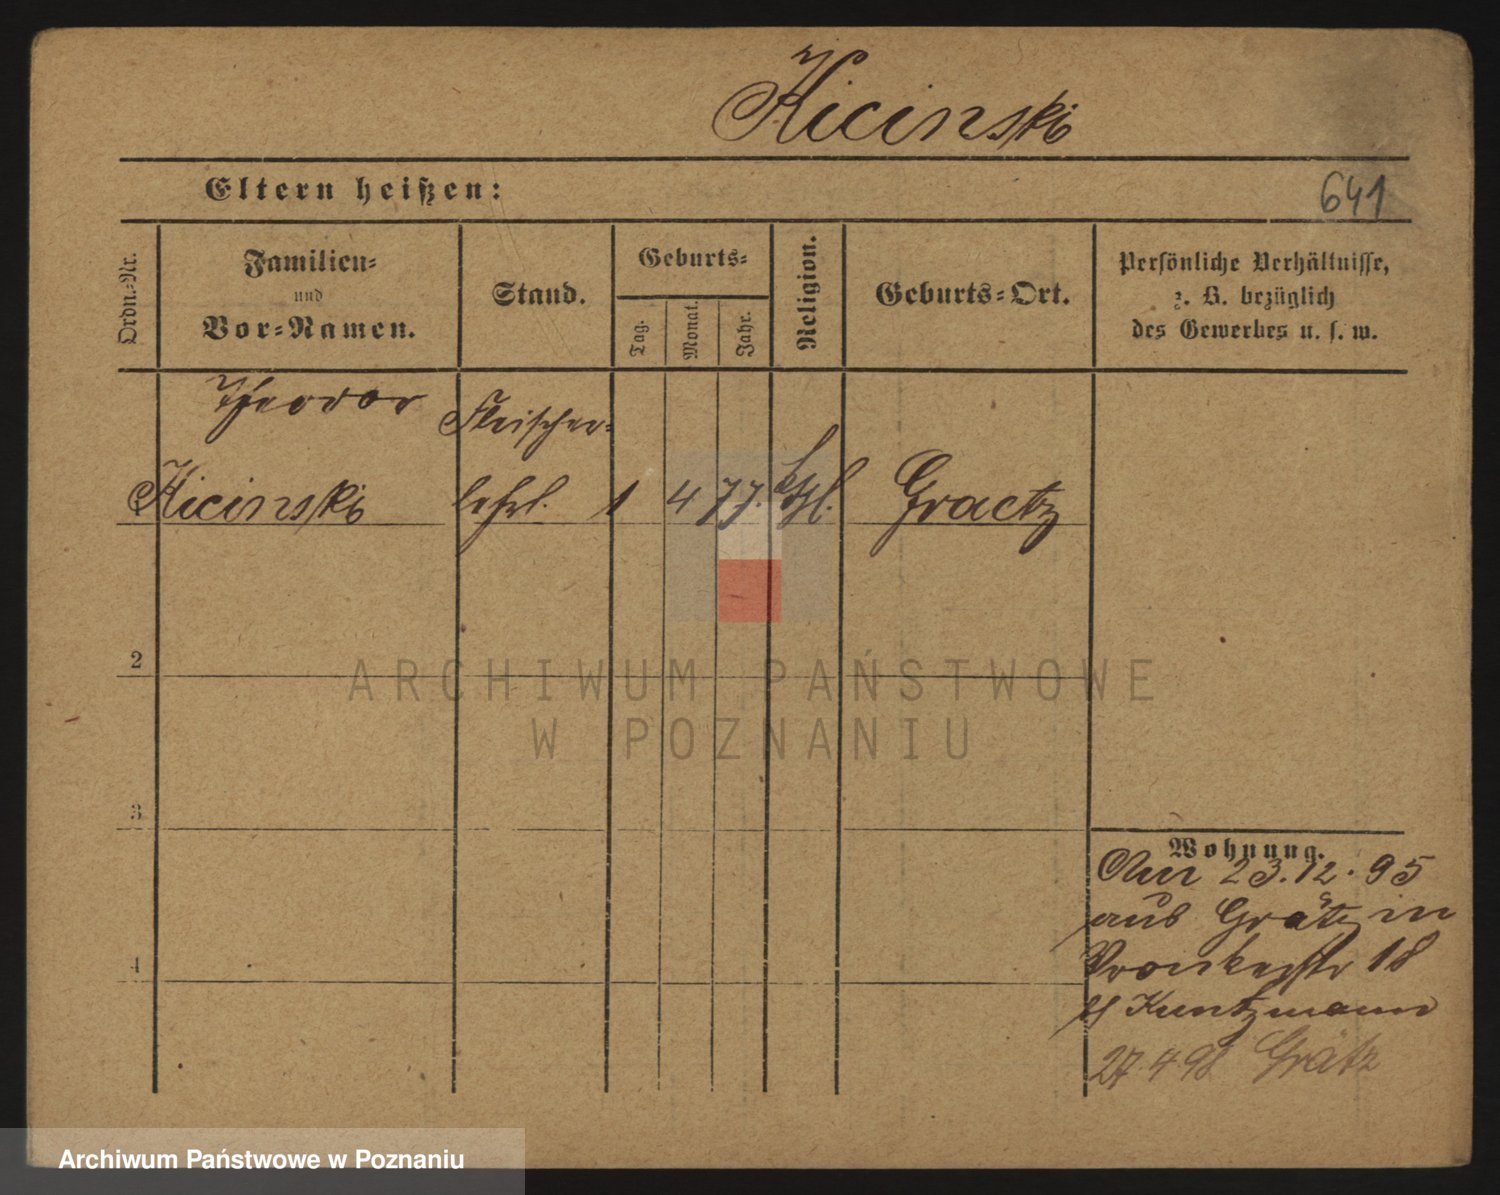 Kicinski
Eltern heißen:
641
Ordn.-Nr.
Familien-
und
Vor-Namen.
Stand.
Geburts-
Tag.
Monat.
Jahr.
Religion.
Geburts-Ort.
Persönliche Verhältnisse,
z. B. bezüglich
des Gewerbes u. s. w.
Theodor
Fleischer-
Kicinski lehrl. 1 4 77. kthl. Graetz
2
ARCHIWUM PAŃSTWOWE
W POZNANIU
3
Wohnung.
Am 23.12.95
aus Grätz in
Wronkerstr 18
b/ Kuntzmann
4
27.4.98 Grätz
Archiwum Państwowe w Poznaniu